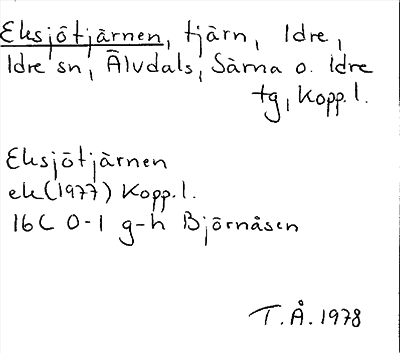 Eksjötjärnen, tjärn, Idre,
Idre sn, Älvdals, Särna o. Idre
tg, Kopp.l.
Eksjötjärnen
ek(1977) Kopp.l.
16C 0-1 g-h Björnåsen
T.Å.1978